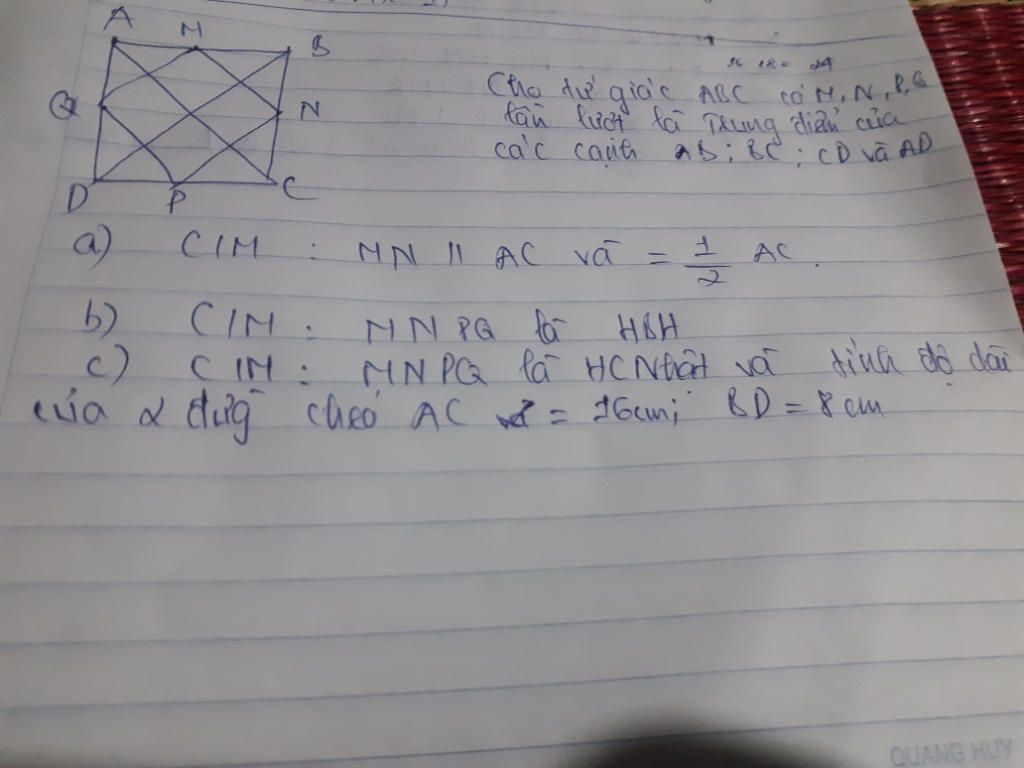 A M B
Cho tứ giác ABC có M, N, P, Q
Q N
lần lượt là Trung điểm của
các cạnh AB ; BC ; CD và AD
D P C
a) C/M : MN // AC và = 1/2 AC.
b) C/M : MNPQ là HBH
c) C/M : MNPQ là HCNhật và tính độ dài
của 2 đường chéo AC = 16cm; BD = 8cm
QUANG HUY